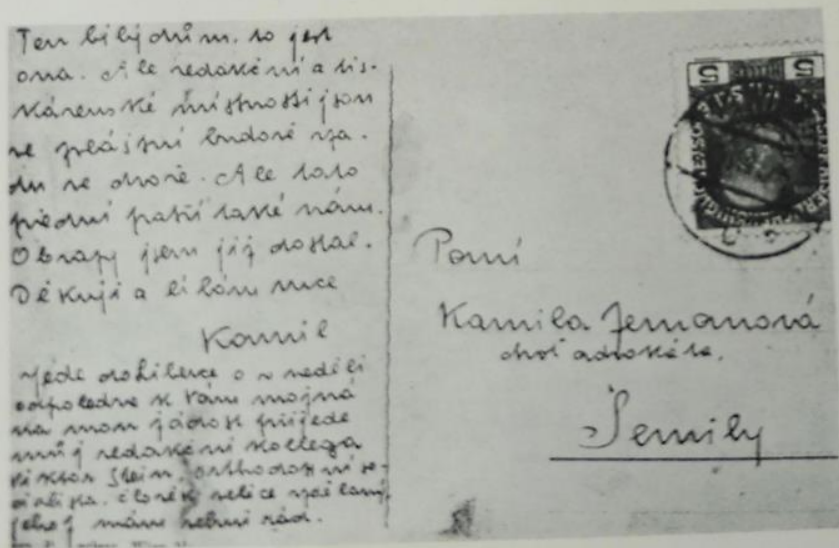 Ten bílý dům. to jest
ona. Ale redakční a tis-
kárenské místnosti jsou
ve zvláštní budově vza-
du ve dvoře. Ale tato
přední patří také nám.
Obrazy jsem již dostal.
Děkuji a líbám ruce
Kamil
v neděli
odpoledne k Vám možná
na mou žádost přijede
můj redakční kollega
Viktor Stein. orthodoxní so-
cialista. člověk velice vzdělaný,
jehož mám velmi rád.
Paní
Kamila Zemanová
choť advokáta.
Semily
5 5